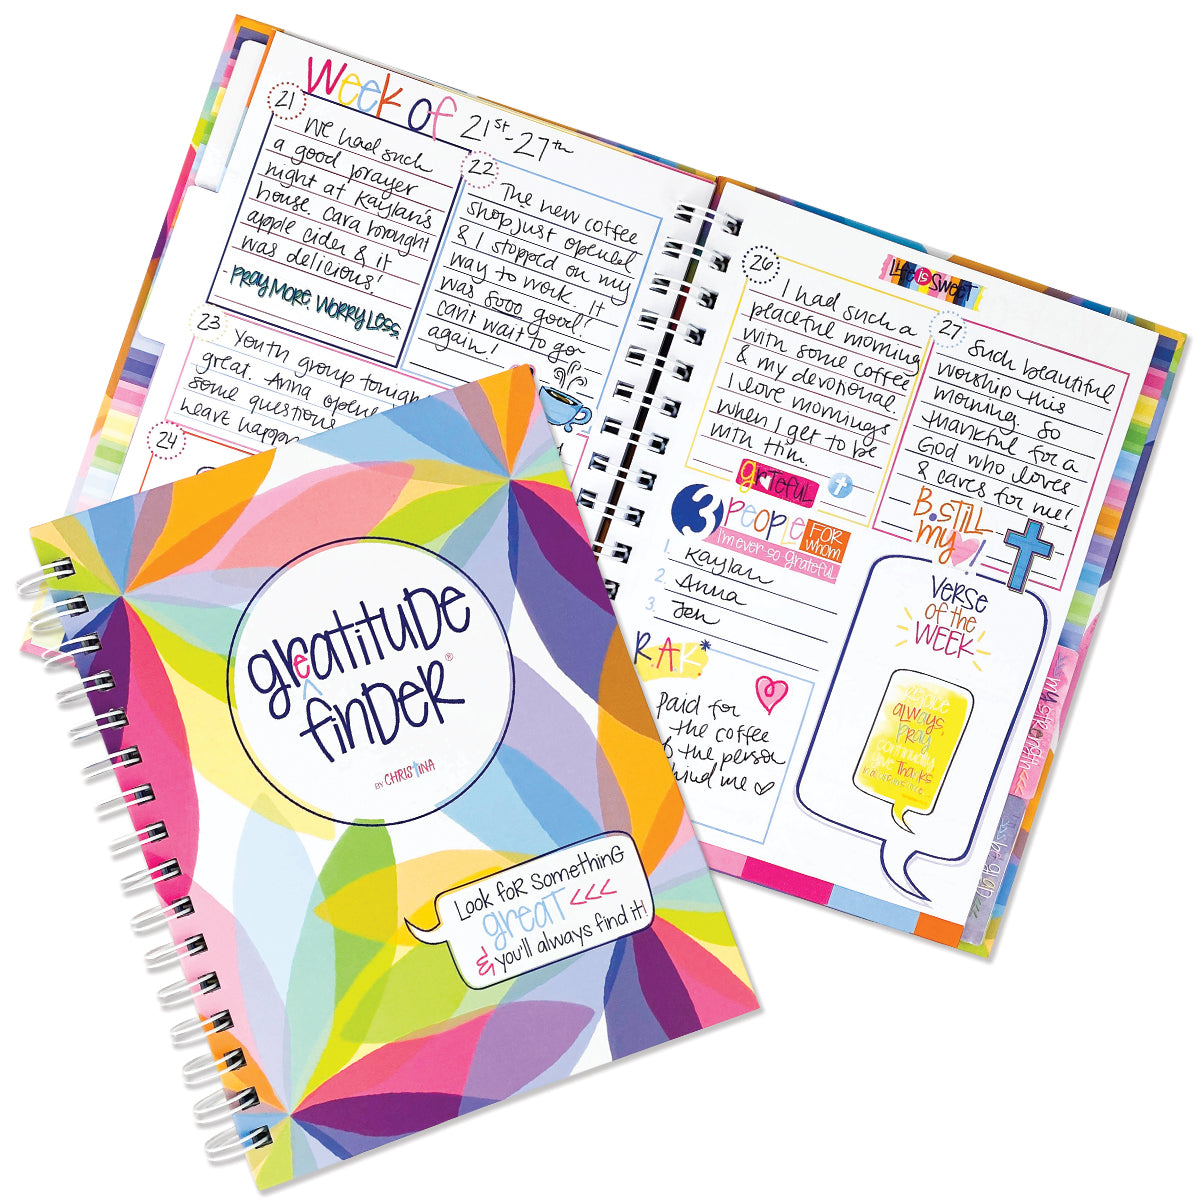 Week of 21st-27th
21
We had such
a good prayer
night at Kaylan's
house. Cara brought
apple cider & it
was delicious!
-PRAY MORE. WORRY LESS
22
The new coffee
shop just opened
& I stopped on my
way to work. It
was sooo good!
can't wait to go
again!
23
Youth group tonight
great. Anna opened
some questions
heart happ
24
26
I had such a
peaceful morning
with some coffee
& my devotional.
I love mornings
when I get to be
with Him.
grateful
LIFE IS SWEET
27
Such beautiful
worship this
morning. So
thankful for a
God who loves
& cares for me!
B.STILL
my !
3 PEOPLE FOR WHOM
I'm ever so grateful
1. Kaylan
2. Anna
3. Jen
R.A.K.*
Paid for
the coffee
of the person
hind me
VERSE
OF THE
WEEK
always,
pray
continually
give Thanks
my strength <<<
gratitude
finder®
BY CHRISTINA
Look for something
great <<<
& you'll always find it!